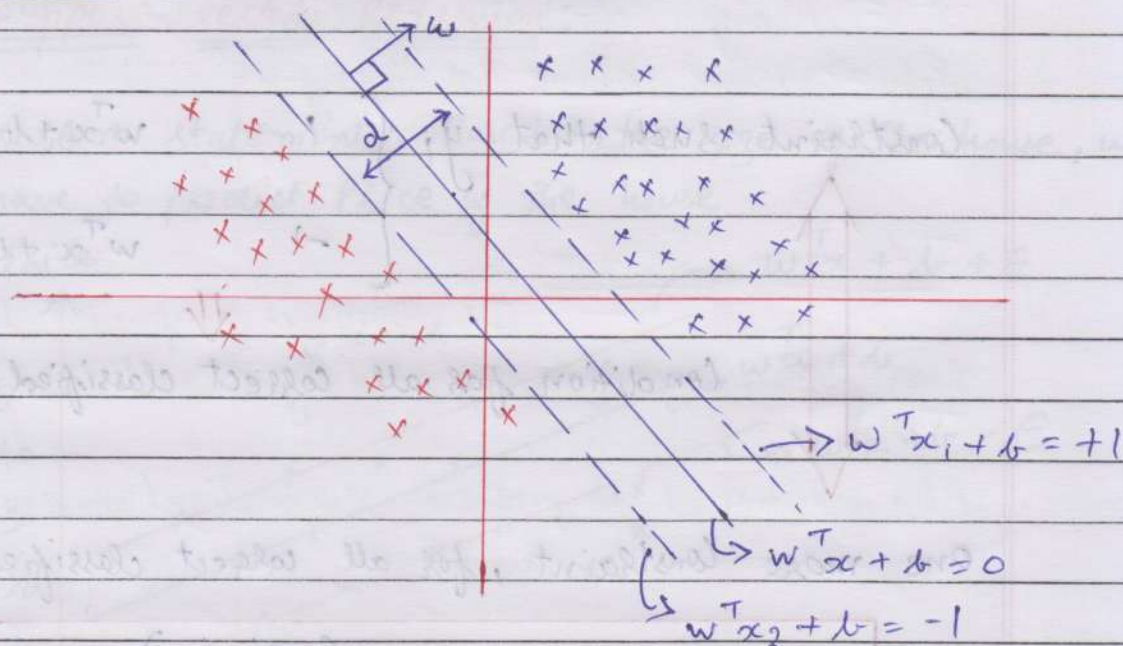 w
d
wᵀx₁ + b = +1
wᵀx + b = 0
wᵀx₂ + b = -1